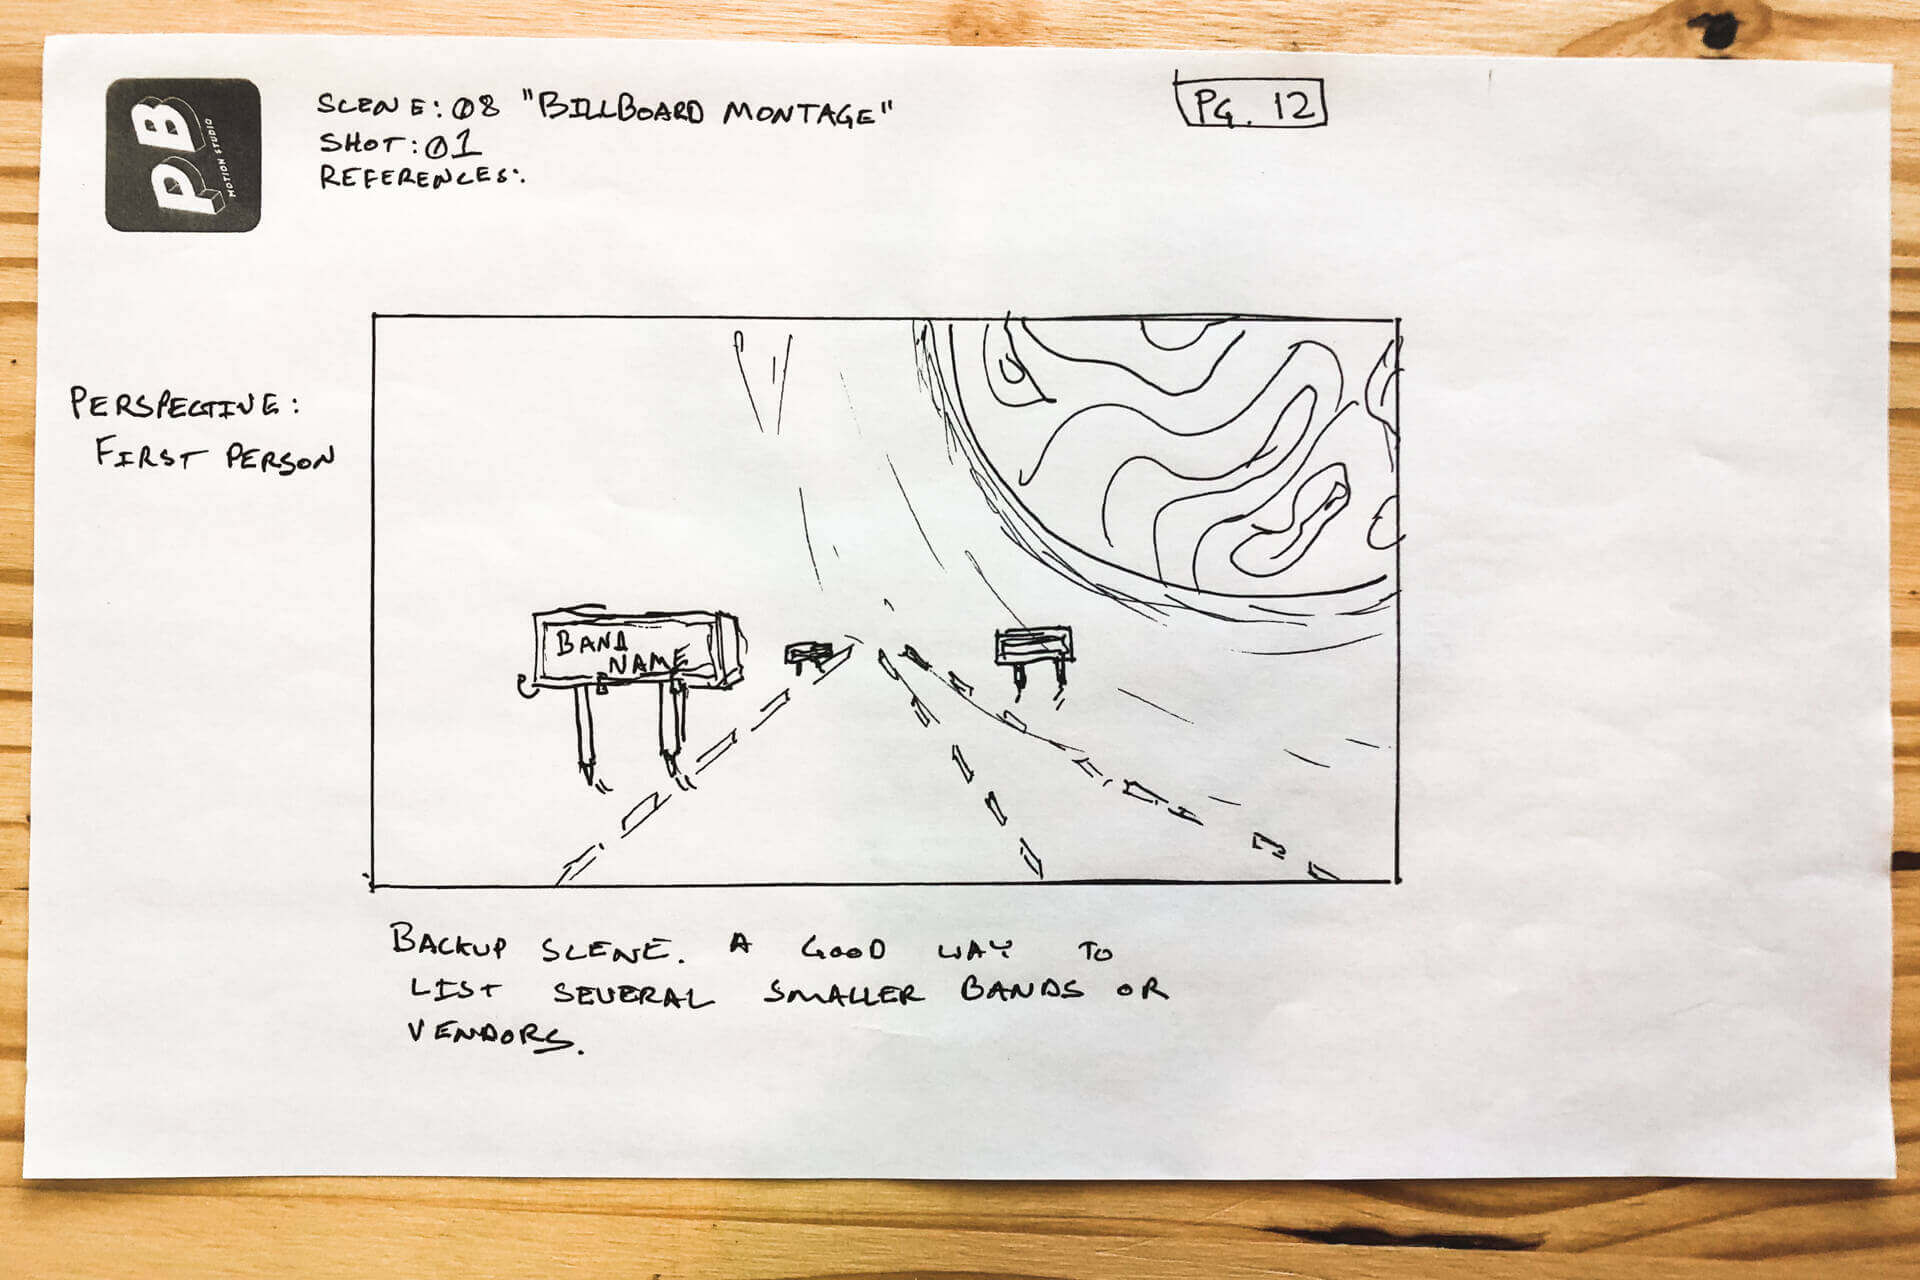 PB
MOTION STUDIO
SCENE: 08 "BILLBOARD MONTAGE"
SHOT: 01
REFERENCES:
PG. 12
PERSPECTIVE:
FIRST PERSON
BAND
NAME
BACKUP SCENE. A GOOD WAY TO
LIST SEVERAL SMALLER BANDS OR
VENDORS.